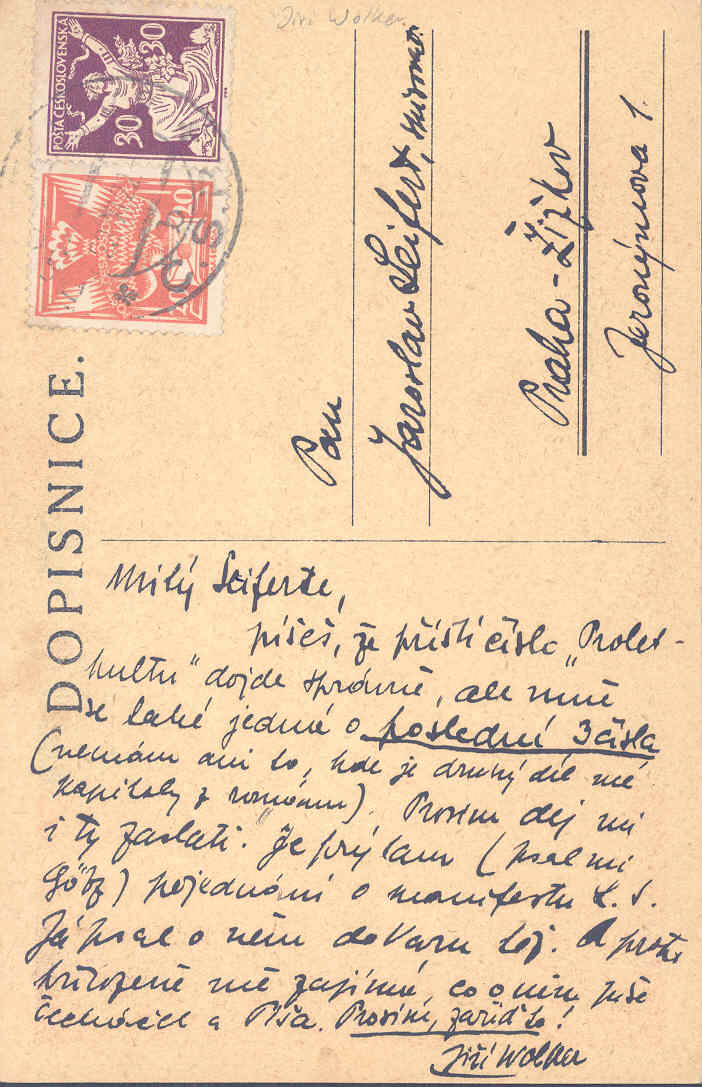 Jiří Wolker.
POŠTA ČESKOSLOVENSKÁ
30 30
20
DOPISNICE.
Pan
Jaroslav Seifert,
Praha-Žižkov
Jeronýmova 1.
Milý Seiferte,
píšeš, že příští čísla „Prolet-
kultu" dojde správně, ale mně
se také jedná o poslední 3 čísla
(nemám ani to, kde je druhý díl mé
kapitoly z románu). Prosím dej mi
i ty zaslati. Je prý tam (psal mi
Götz) pojednání o manifestu L. S.
Já psal o něm do Varu též. A proto
přirozeně mě zajímá, co o něm píše
a Píša. Prosím, zařiď to!
Jiří Wolker